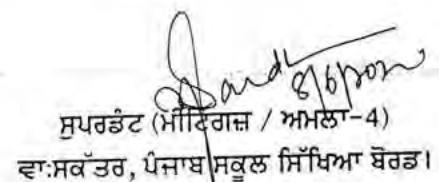 8/6/2022
ਸੁਪਰਡੰਟ (ਮੀਟਿੰਗਜ਼ / ਅਮਲਾ-4)
ਵਾ:ਸਕੱਤਰ, ਪੰਜਾਬ ਸਕੂਲ ਸਿੱਖਿਆ ਬੋਰਡ।